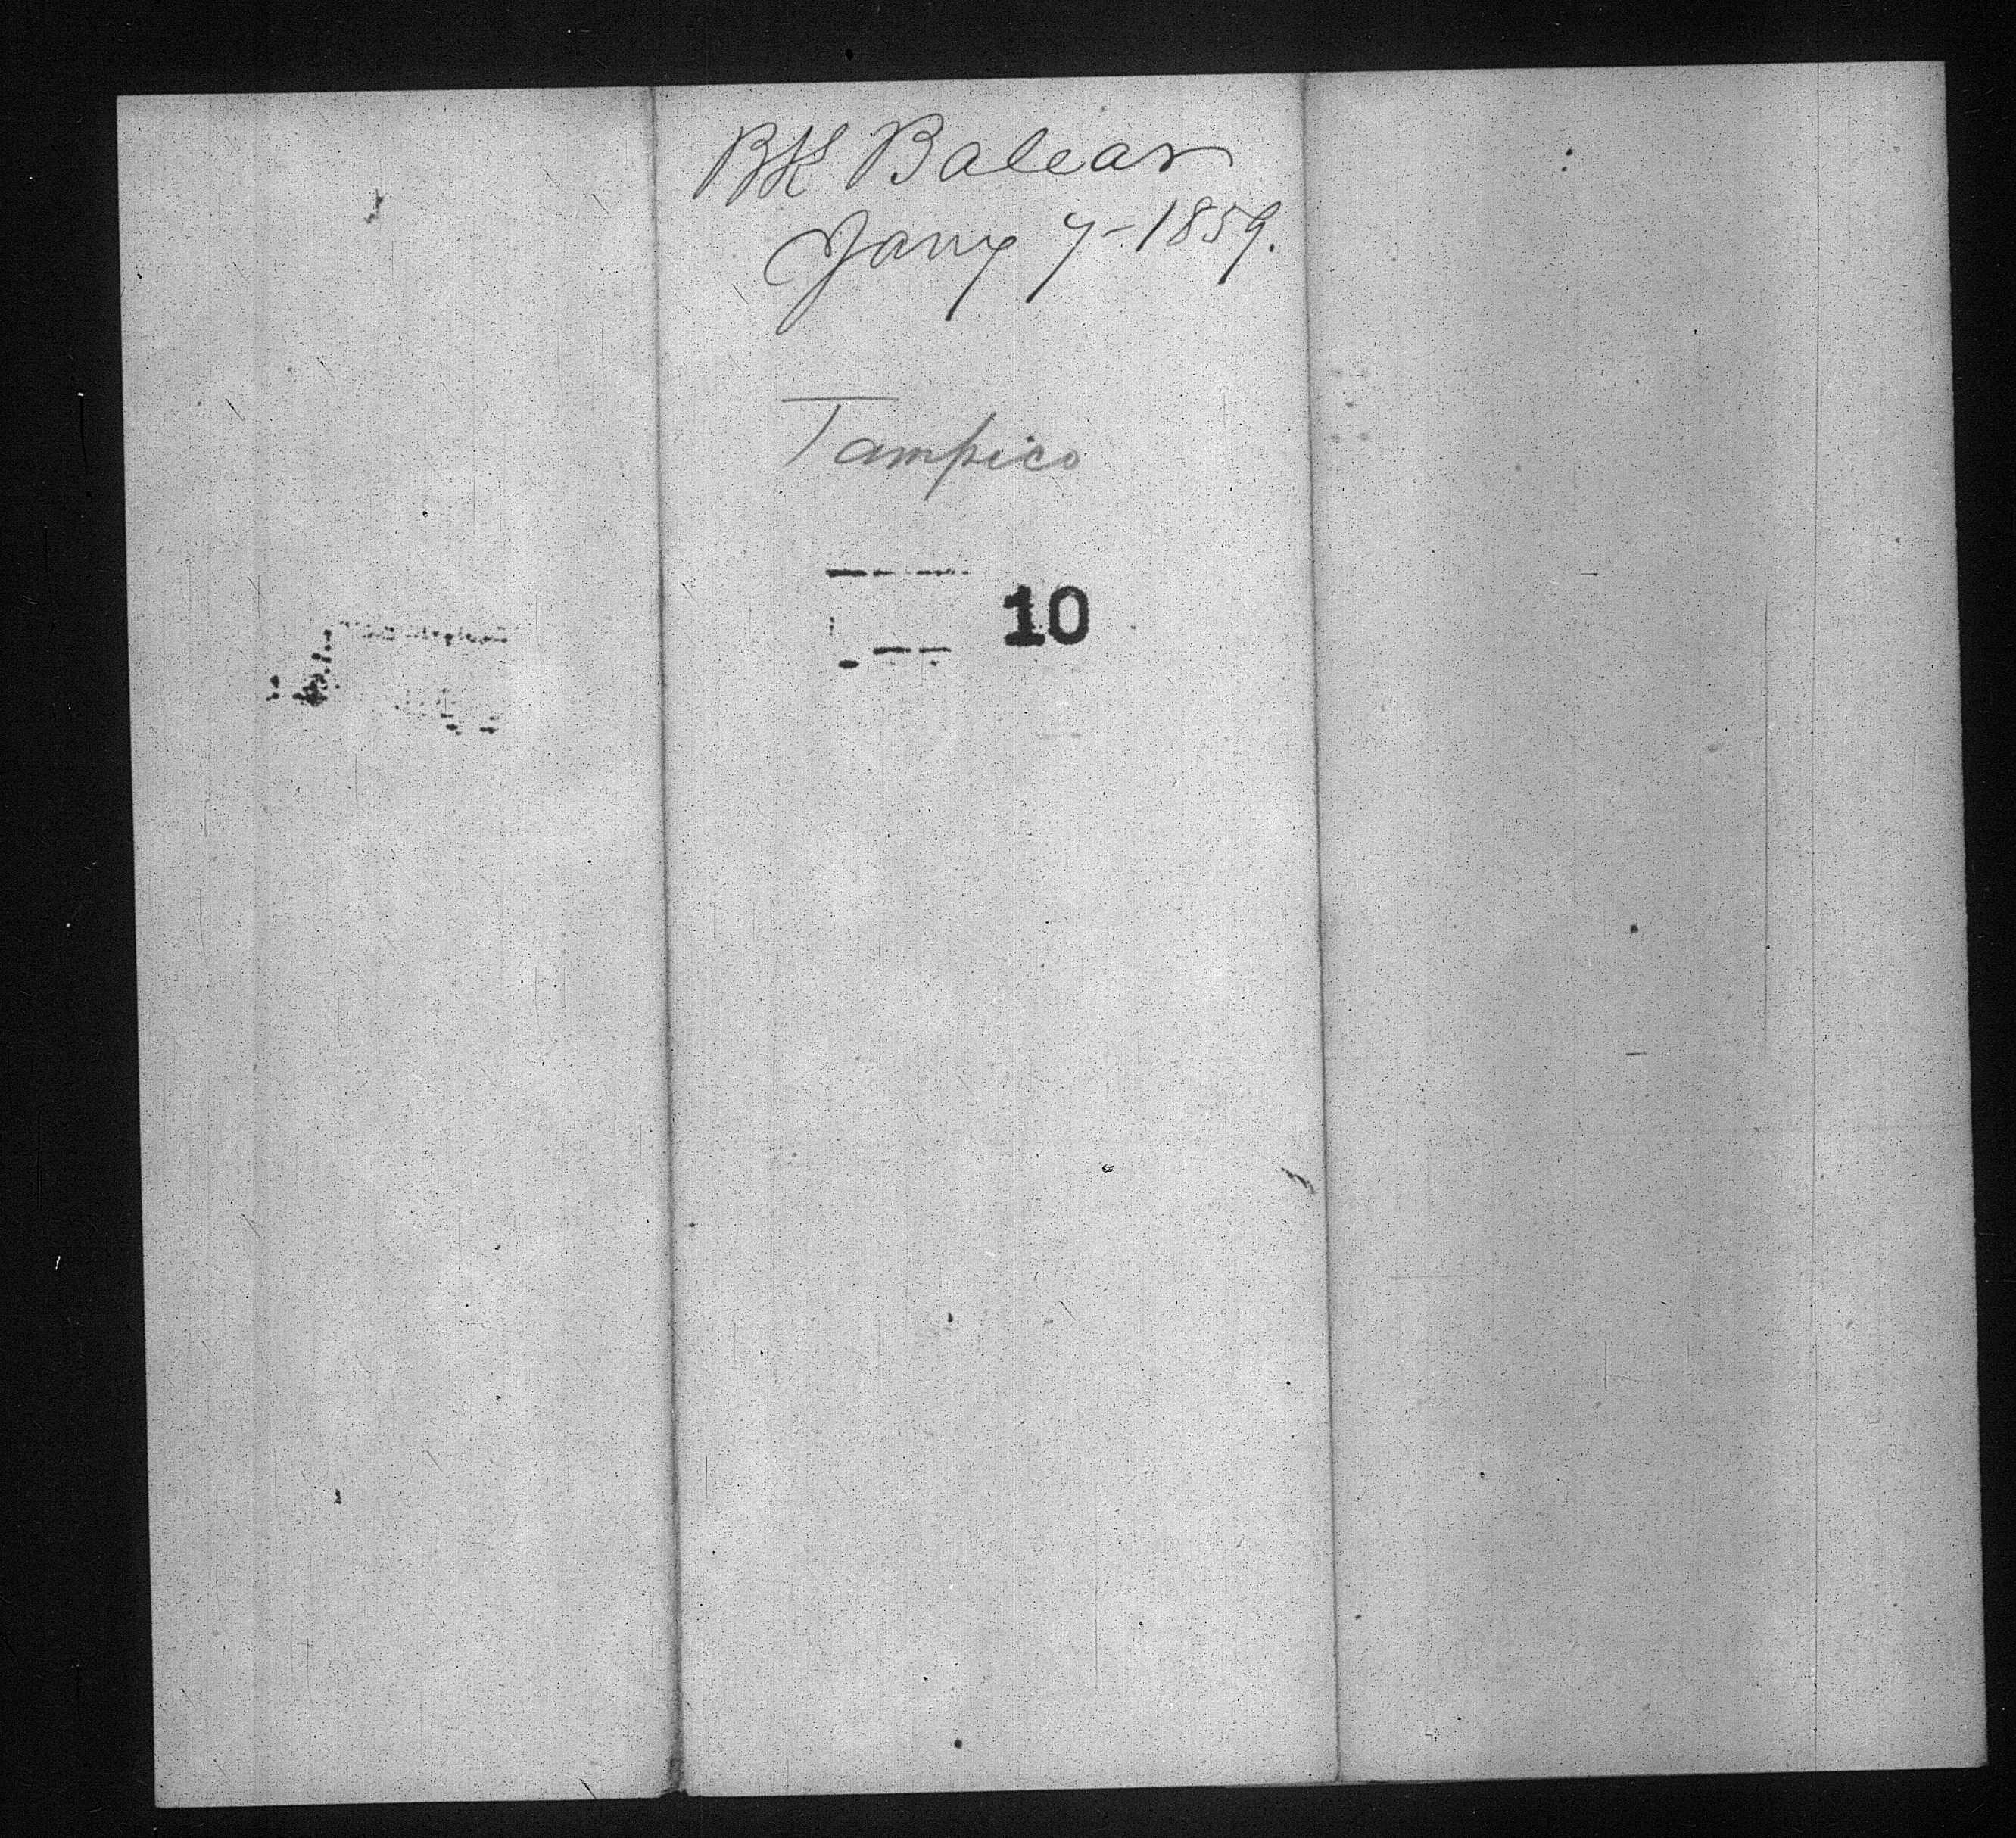 BK Balear
Jany 7-1859.
Tampico
10